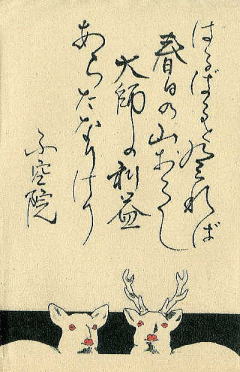 はるばると れば
春日の山おろし
大師の利益
あらたなりけり
不空院